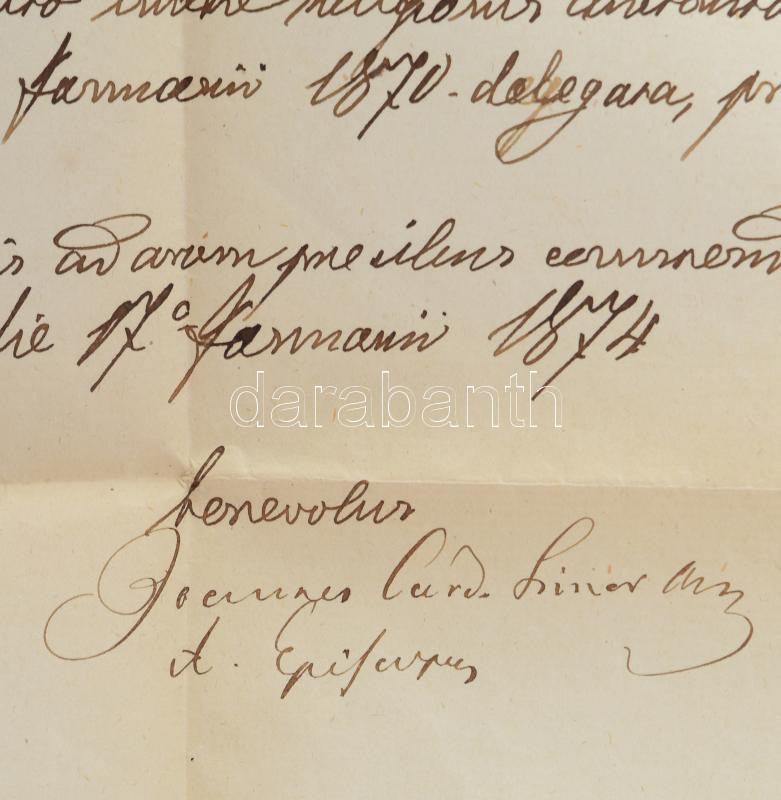 religiosus
Januarii 1870. delegata, pr
is ad aram precibus commem
die 17ª Januarii 1874
darabanth
benevolus
Joannes Card. Simor mp
A. Episcopus